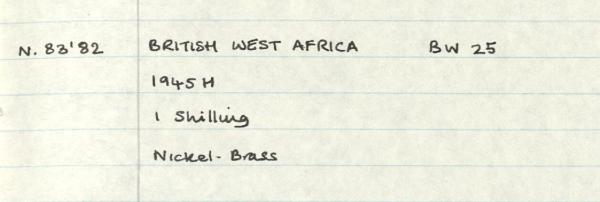 N. 83'82 BRITISH WEST AFRICA BW 25
1945 H
1 Shilling
Nickel-Brass